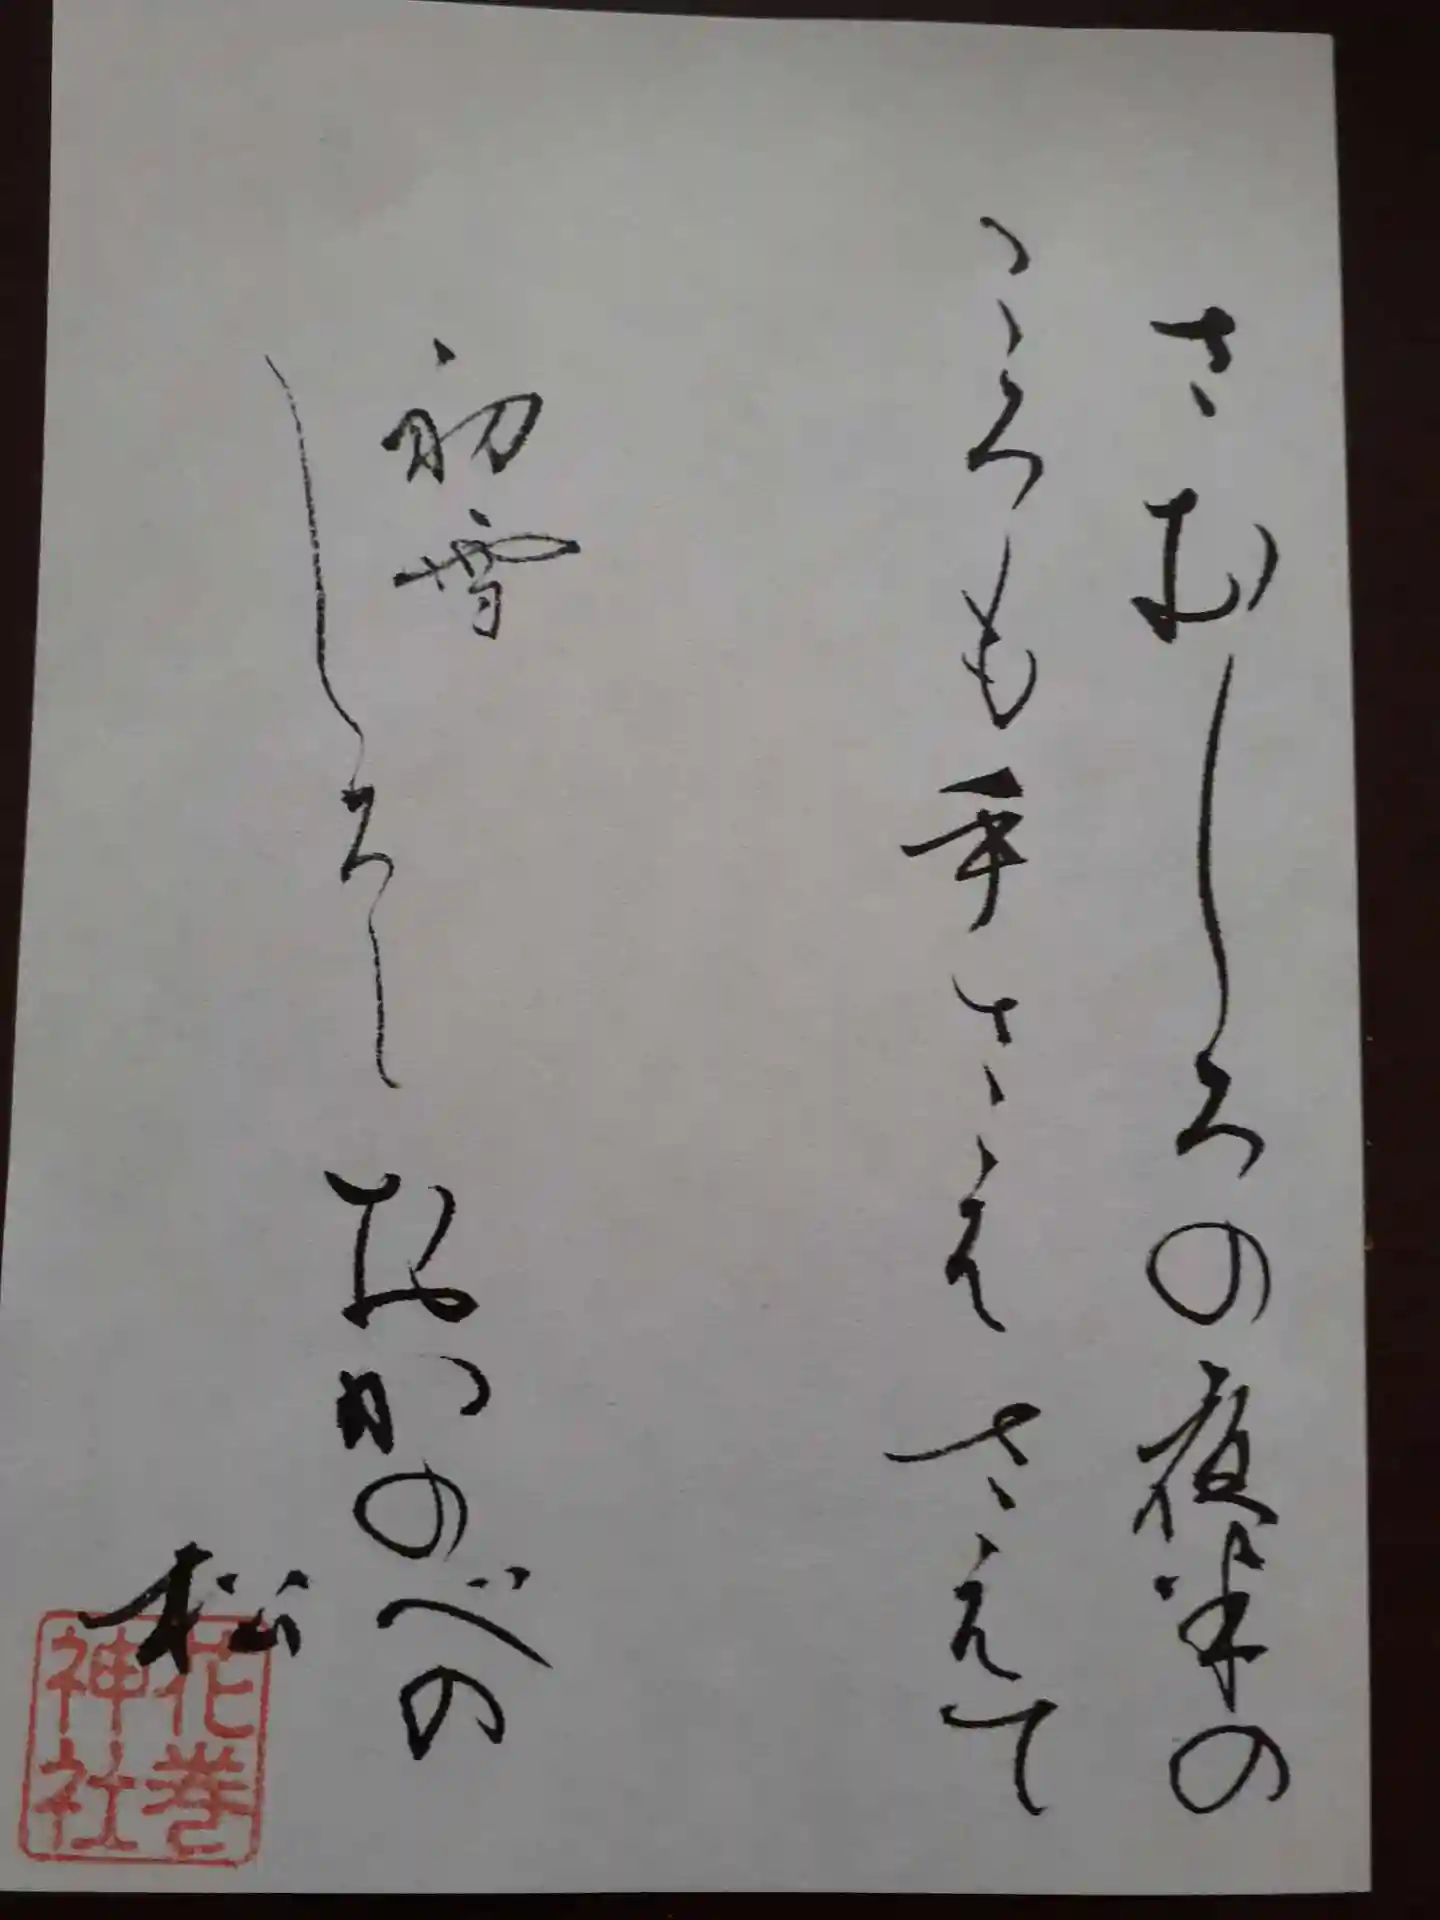 さむしろの夜半の
ころも手さえさえて
初雪
しろし おかのべの
松
花巻
神社